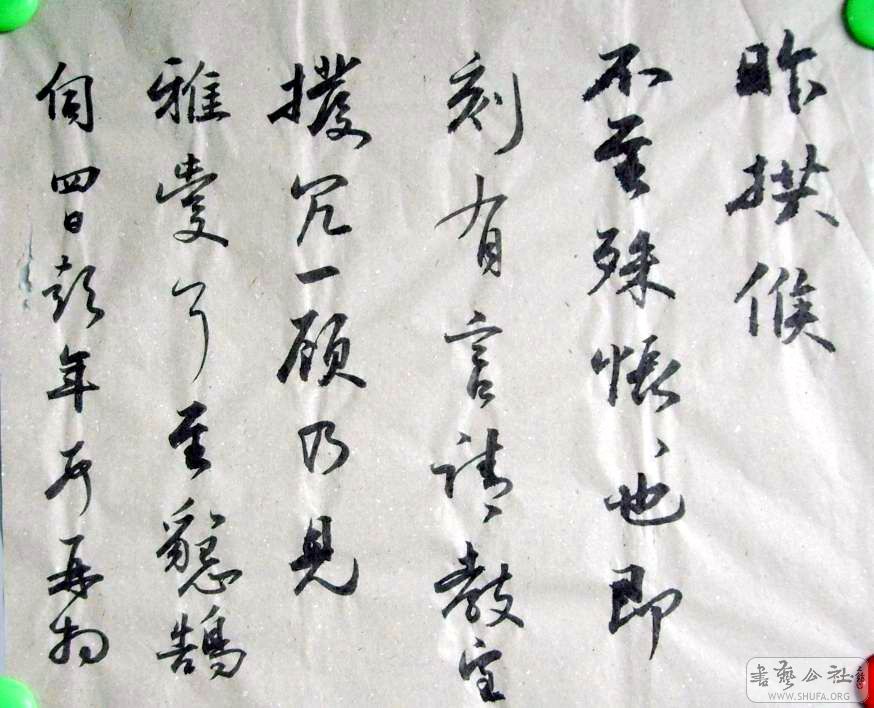 昨拱候
不至殊悵悵也即
刻有言請教定
撥冗一顧乃見
雅愛了至懇鵠
伺四日彭年再拜
書藝公社
WWW.SHUFA.ORG